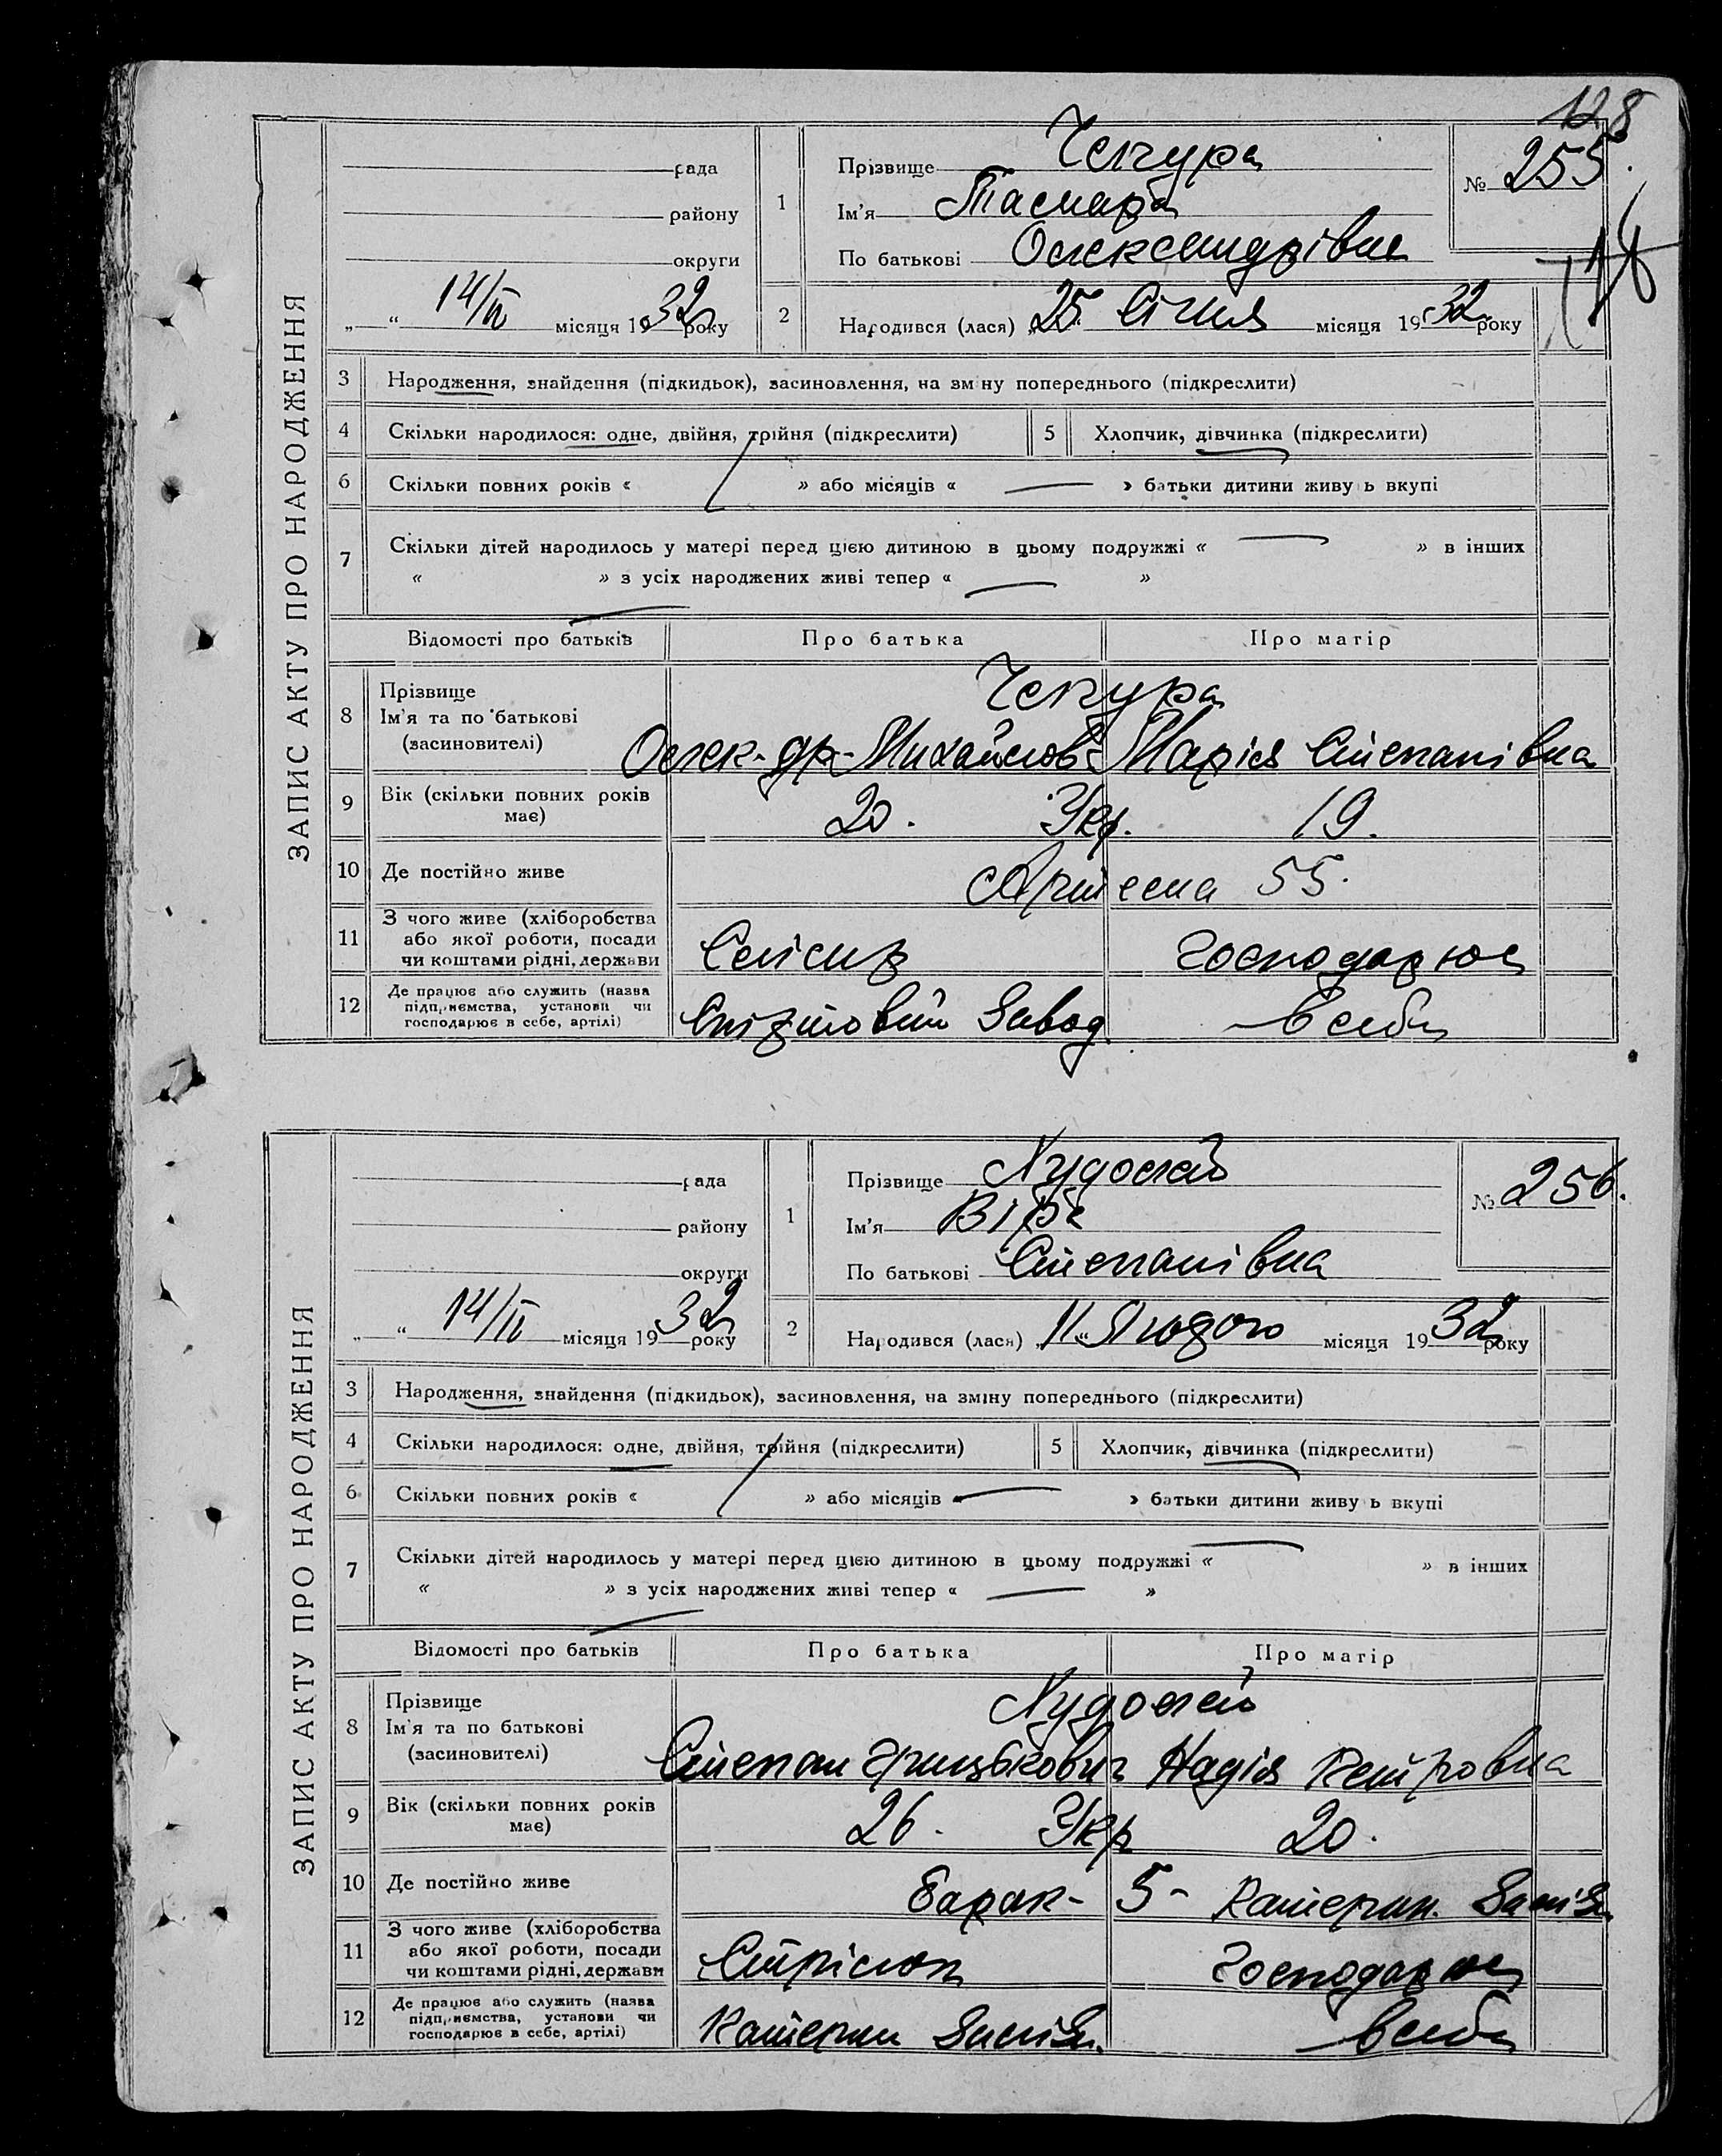 128
ЗАПИС АКТУ ПРО НАРОДЖЕННЯ
рада
району
округи
„ “ 14/II місяця 1932 року
1
Прізвище
Ім'я Тамара
По батькові Олександрівна
№ 255.
2
Народився (лася) „25“ Січня місяця 1932 року
3 Народження, знайдення (підкидьок), засиновлення, на зміну попереднього (підкреслити)
4 Скільки народилося: одне, двійня, трійня (підкреслити) 5 Хлопчик, дівчинка (підкреслити)
6 Скільки повних років « » або місяців « » батьки дитини живуть вкупі
7 Скільки дітей народилось у матері перед цією дитиною в цьому подружжі « » в інших
« » з усіх народжених живі тепер « »
Відомості про батьків Про батька Про матір
8 Прізвище
Ім'я та по батькові
(засиновителі)
Олек-др Михайлов Марія Степанівна
9 Вік (скільки повних років має) 20. Укр. 19.
10 Де постійно живе 55.
11 З чого живе (хліборобства або якої роботи, посади чи коштами рідні, держави Слюсар господарює
12 Де працює або служить (назва підприємства, установи чи господарює в себе, артілі) Завод в себе
ЗАПИС АКТУ ПРО НАРОДЖЕННЯ
рада
району
округи
„ “ 14/II місяця 1932 року
1
Прізвище Худолей
Ім'я Віра
По батькові Степанівна
№ 256.
2
Народився (лася) „11“ Лютого місяця 1932 року
3 Народження, знайдення (підкидьок), засиновлення, на зміну попереднього (підкреслити)
4 Скільки народилося: одне, двійня, трійня (підкреслити) 5 Хлопчик, дівчинка (підкреслити)
6 Скільки повних років « » або місяців « » батьки дитини живуть вкупі
7 Скільки дітей народилось у матері перед цією дитиною в цьому подружжі « » в інших
« » з усіх народжених живі тепер « »
Відомості про батьків Про батька Про матір
8 Прізвище Худолей
Ім'я та по батькові
(засиновителі)
Степан Надія Петровна
9 Вік (скільки повних років має) 26. Укр 20.
10 Де постійно живе Барак - 5 - Катерин. Заліз.
11 З чого живе (хліборобства або якої роботи, посади чи коштами рідні, держави господарює
12 Де працює або служить (назва підприємства, установи чи господарює в себе, артілі) Катерин Заліз. в себе